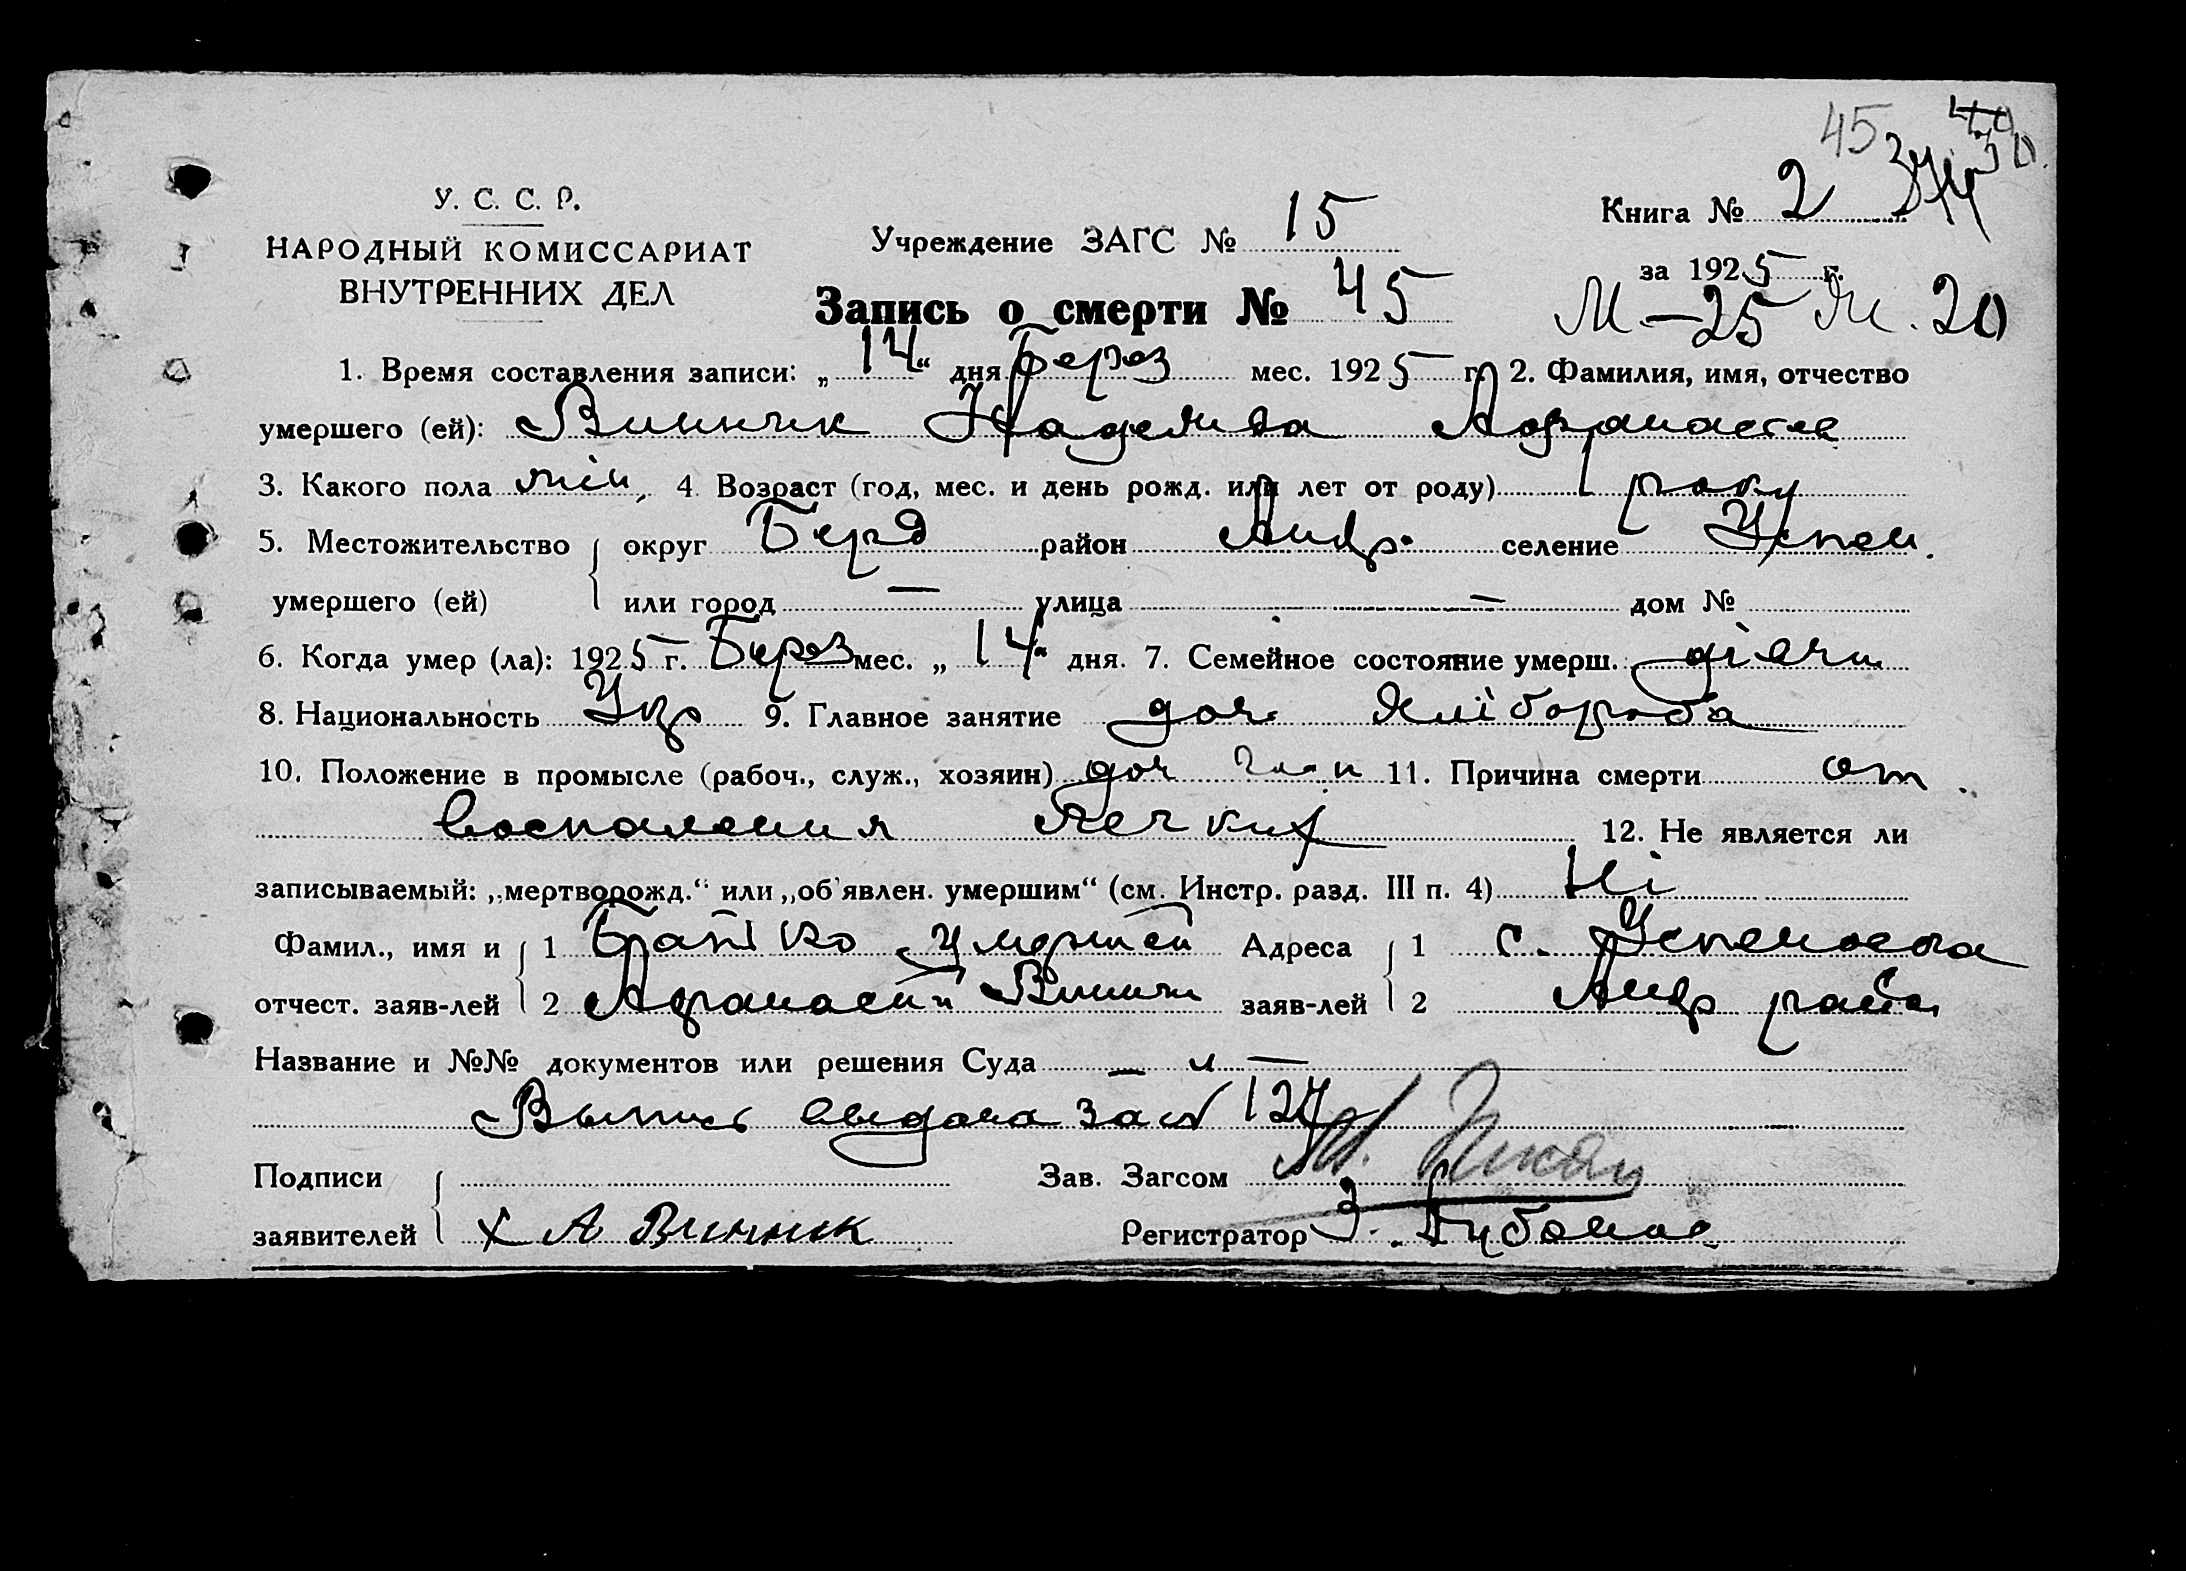 45
У. С. С. Р.
НАРОДНЫЙ КОМИССАРИАТ
ВНУТРЕННИХ ДЕЛ
Учреждение ЗАГС № 15
Книга № 2
за 1925 г.
Запись о смерти № 45
М – 25 Ж. 20
1. Время составления записи: „14“ дня Берез мес. 1925 г. 2. Фамилия, имя, отчество
умершего (ей): Винник Надежда Афанасьев
3. Какого пола жін. 4. Возраст (год, мес. и день рожд. или лет от роду) 1 року
5. Местожительство округ Берд район Андр. селение Успен.
умершего (ей) или город — улица — дом №
6. Когда умер (ла): 1925 г. Берез мес. „14“ дня. 7. Семейное состояние умерш.: дівчи
8. Национальность Укр 9. Главное занятие доч. Хлібороба
10. Положение в промысле (рабоч., служ., хозяин) доч 11. Причина смерти от
воспаления легких 12. Не является ли
записываемый: „мертворожд.“ или „об'явлен. умершим“ (см. Инстр. разд. III п. 4) Ні
Фамил., имя и 1 Батько умершей Адреса 1 с. Успеновка
отчест. заяв-лей 2 Афанасий Винник заяв-лей 2 Андр района
Название и №№ документов или решения Суда — " —
Выпись выдана за № 127
Подписи Зав. Загсом
заявителей х А Винник Регистратор З.